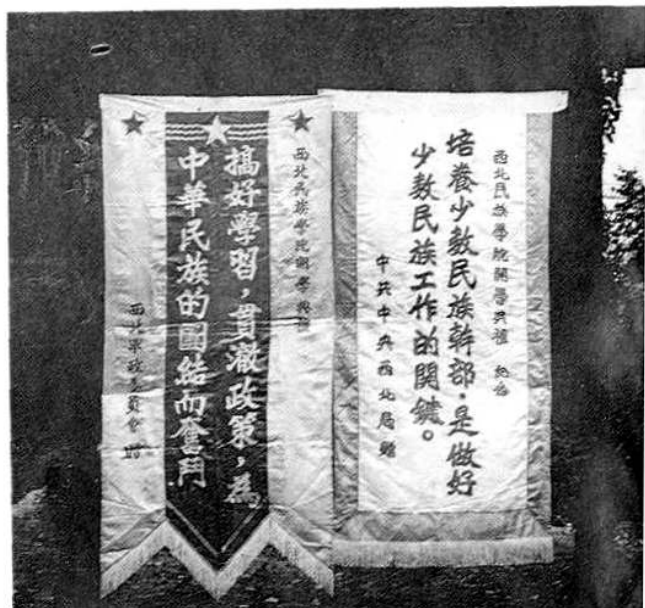 西北民族學院開學典禮 紀念
培養少數民族幹部·是做好
少數民族工作的関鍵。
中共中央西北局贈
西北民族學院開學典禮
搞好學習，貫澈政策，為
中華民族的團結而奮鬥
西北軍政委員會 贈